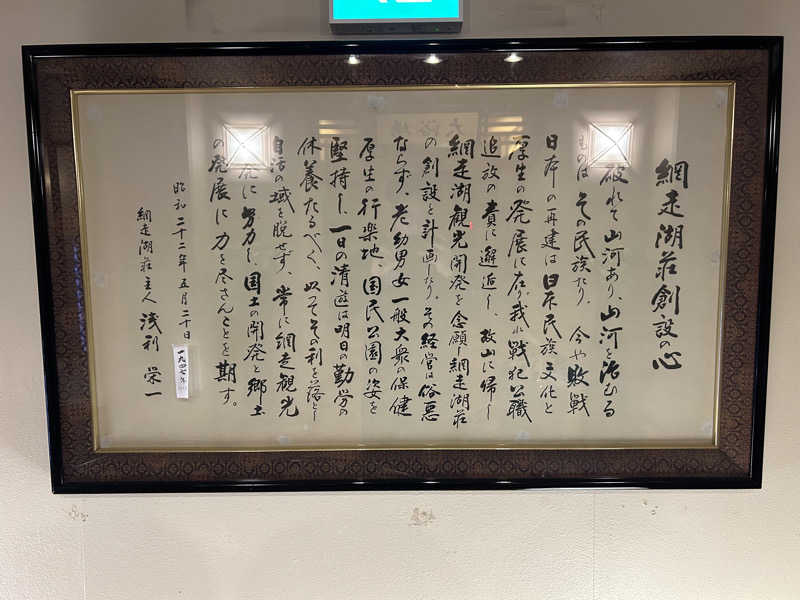 網走湖荘創設の心
破れて山河あり、山河を治むる
ものは その民族たり、今や敗戦
日本の再建は日本民族文化と
厚生の発展に在り 我れ戦犯公職
追放の責に邂逅し、故山に帰し
網走湖観光開発を念願し網走湖荘
の創設を計画したり。その経営は俗悪
ならず、老幼男女一般大衆の保健
厚生の行楽地 国民公園の姿を
堅持し、一日の清遊は明日の勤労の
休養たるべく、以つてその利を落とし
自活の域を脱せず、常に網走観光
に努力し、国土の開発と郷土
の発展に力を尽さんことを期す。
昭和二十二年五月二十日
一九四七年
網走湖荘主人 浅利 栄一